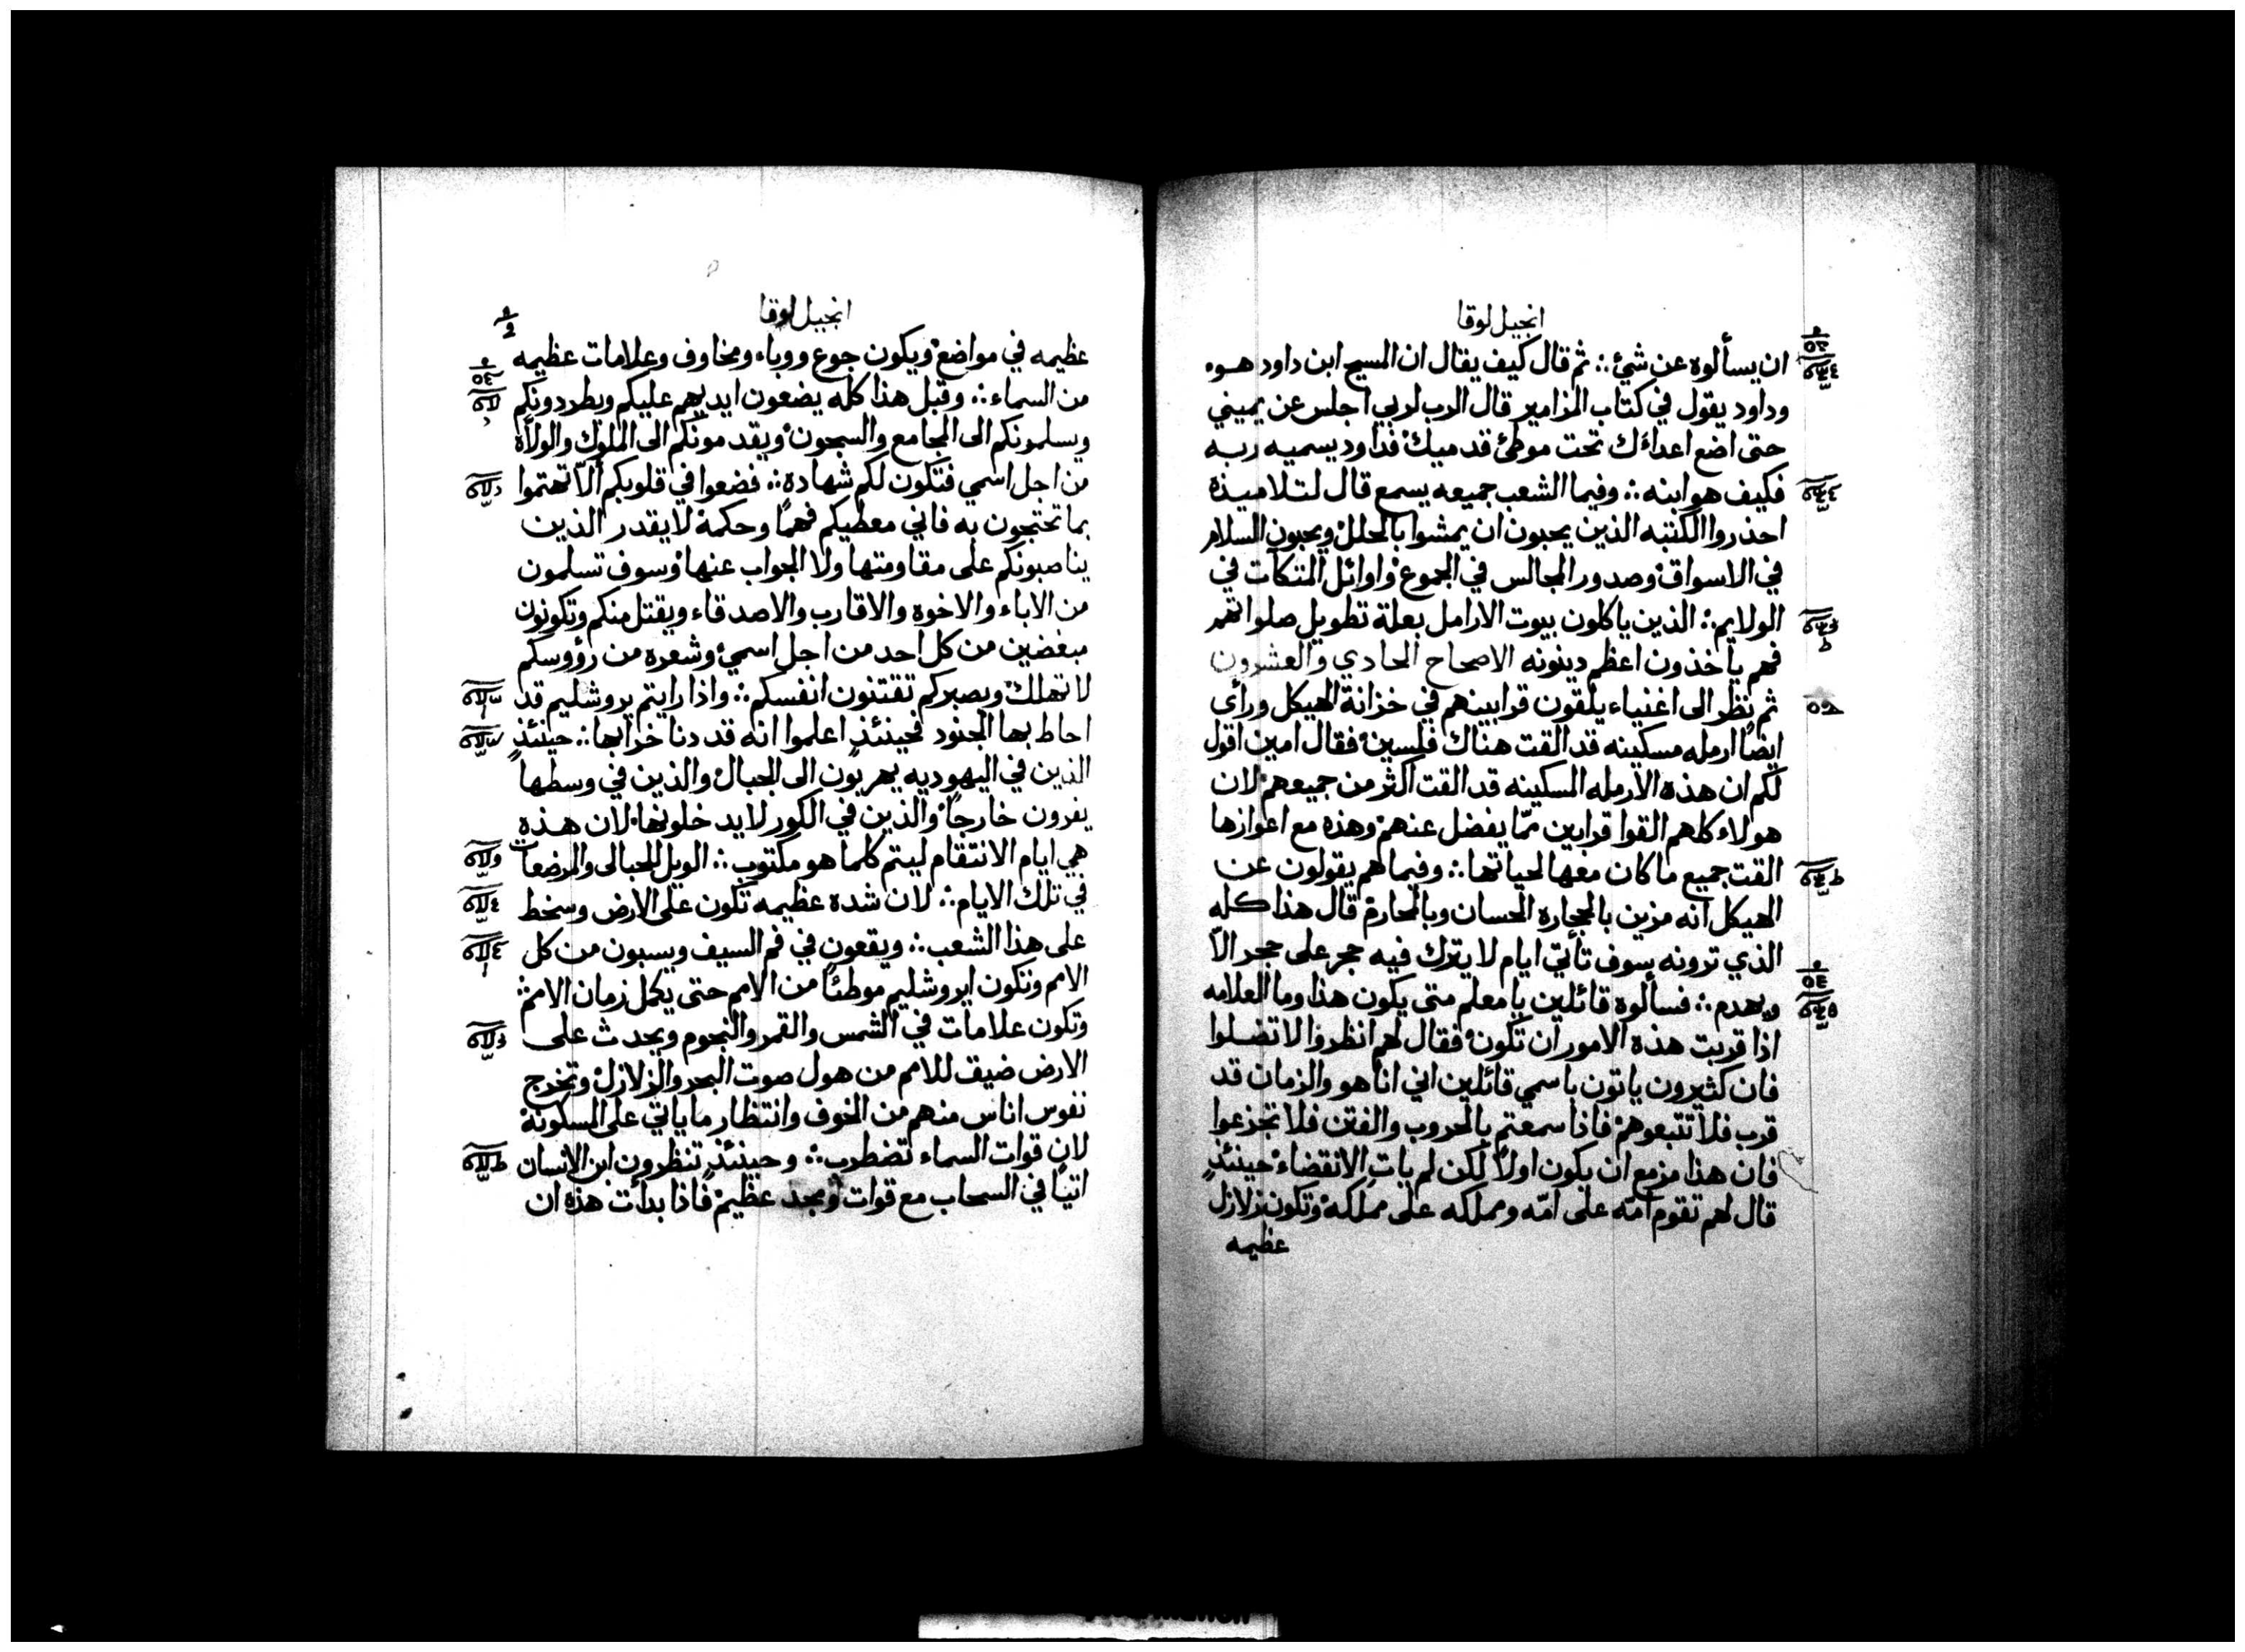 انجيل لوقا
ان يسألوه عن شئ ⁘ ثم قال كيف يقال ان المسيح ابن داود هوء
وداود يقول في كتاب المزامير قال الرب لربي اجلس عن يميني
حتى اضع اعداءك تحت موطئ قدميك فداود يسميه ربه
فكيف هو ابنه ⁘ وفيما الشعب جميعه يسمع قال لتلاميذه
احذروا الكتبه الذين يحبون ان يمشوا بالحلل ويحبون السلام
في الاسواق وصدور المجالس في الجموع واوائل المتكآت في
الولايم ⁘ الذين ياكلون بيوت الارامل بعلة تطويل صلواتهم
فهم ياخذون اعظم دينونه الاصحاح الحادي والعشرون
ثم نظر الى اغنياء يلقون قرابينهم في خزانة الهيكل ورأى
ايضًا ارمله مسكينه قد القت هناك فلسين فقال امين اقول
لكم ان هذه الارمله المسكينه قد القت اكثر من جميعهم لان
هولاء كلهم القوا قرابين ممّا يفضل عنهم وهذه مع اعوازها
القت جميع ما كان معها لحياتها ⁘ وفيما هم يقولون عن
الهيكل انه مزين بالحجاره الحسان وبالمحارم قال هذا كله
الذي ترونه سوف تأتي ايام لا يترك فيه حجر على حجر الّا
ويهدم ⁘ فسألوه قائلين يا معلم متى يكون هذا وما العلامه
اذا قربت هذه الامور ان تكون فقال لهم انظروا لا تضلوا
فان كثيرون ياتون باسمي قائلين اني انا هو والزمان قد
قرب فلا تتبعوهم فاذا سمعتم بالحروب والفتن فلا تجزعوا
فان هذا مزمع ان يكون اولًا لكن لم يات الانقضاء حينئذٍ
قال لهم تقوم امّه على امّه ومملكه على مملكه وتكون زلازل
عظيمه
انجيل لوقا
عظيمه في مواضع ويكون جوع ووباء ومخاوف وعلامات عظيمه
من السماء ⁘ وقبل هذا كله يضعون ايديهم عليكم ويطردونكم
ويسلمونكم الى المجامع والسجون ويقدمونكم الى الملوك والولاة
من اجل اسمي فتكون لكم شهادة ⁘ فضعوا في قلوبكم ألّا تهتموا
بما تحتجون به فاني معطيكم فهمًا وحكمة لا يقدر الذين
يناصبونكم على مقاومتها ولا الجواب عنها وسوف تسلمون
من الاباء والاخوه والاقارب والاصدقاء ويقتل منكم وتكونون
مبغضين من كل احد من اجل اسمي وشعره من رؤوسكم
لا تهلك وبصبركم تقتنون انفسكم ⁘ واذا رايتم يروشليم قد
احاط بها الجنود فحينئذٍ اعلموا انه قد دنا خرابها ⁘ حينئذٍ
الذين في اليهوديه يهربون الى الجبال والذين في وسطها
يفرون خارجًا والذين في الكور لا يدخلونها لان هذه
هي ايام الانتقام ليتم كلما هو مكتوب ⁘ الويل للحبالى والمرضعات
في تلك الايام ⁘ لان شده عظيمه تكون على الارض وسخط
على هذا الشعب ⁘ ويقعون في فم السيف ويسبون من كل
الامم وتكون ايروشليم موطئًا من الامم حتى يكمل زمان الامم ⁘
وتكون علامات في الشمس والقمر والنجوم ويحدث على
الارض ضيق للامم من هول صوت البحر والزلازل وتخرج
نفوس اناس منهم من الخوف وانتظار ما ياتي على المسكونة
لان قوات السماء تضطرب ⁘ وحينئذٍ تنظرون ابن الانسان
اتيًا في السحاب مع قوات ومجد عظيم فاذا بدأت هذه ان